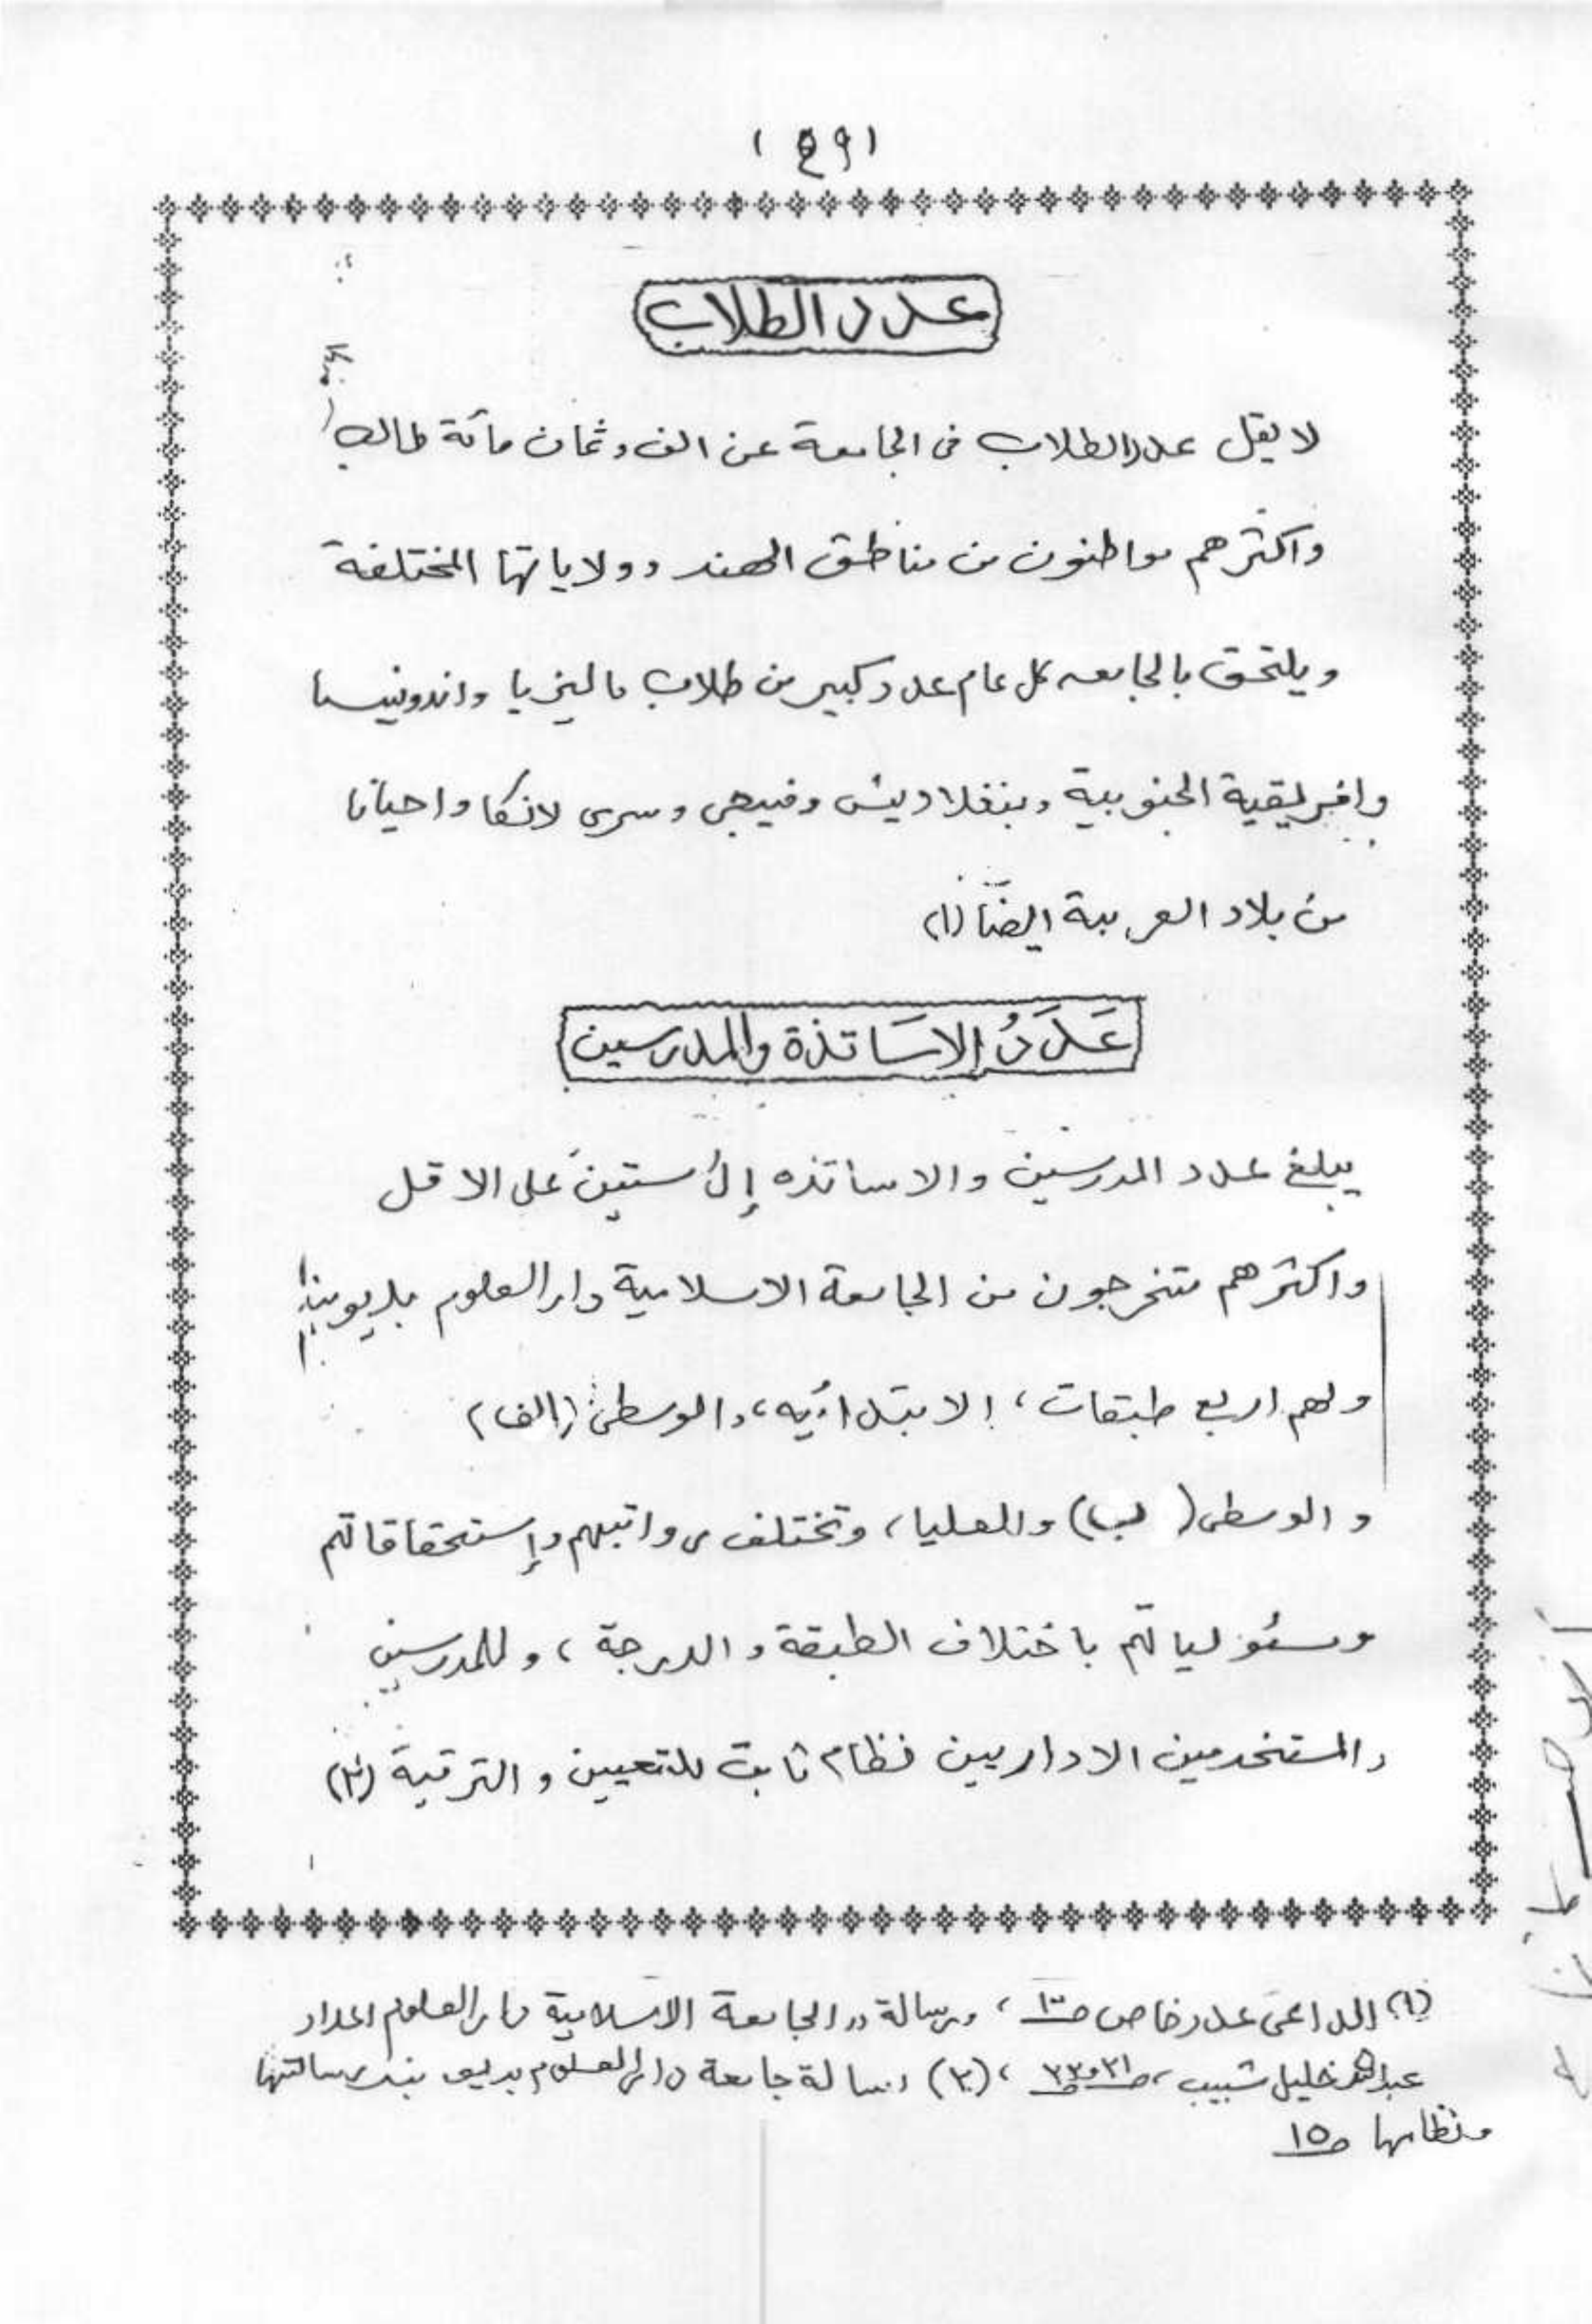 (٤٩)
عدد الطلاب
لا يقل عدد الطلاب فى الجامعة عن الف و ثمان مائة طالب
واكثرهم مواطنون من مناطق الهند وولاياتها المختلفة
ويلتحق بالجامعه كل عام عدد كبير من طلاب ماليزيا واندونيسا
وافريقية الجنوبية وبنغلاديش وفيجى وسرى لانكا واحيانا
من بلاد العربية ايضًا (١)
عَدَدُ الاسَاتذة والمدرسين
يبلغ عدد المدرسين والاساتذه إلى ستين على الاقل
واكثرهم متخرجون من الجامعة الاسلامية دار العلوم بديوبند
ولهم اربع طبقات، الابتدائيه، والوسطى (الف)
والوسطى (ب) والعليا، وتختلف رواتبهم وإستحقاقاتهم
ومسئولياتهم باختلاف الطبقة والدرجة، وللمدرسين
والمستخدمين الاداريين نظام ثابت للتعيين والترقية (٢)
(١) الداعى عدد خاص ، ورسالة "الجامعة الاسلامية دار العلوم اعداد
عبدالله خليل شبيب، ص ٣١ و ٣٣، (٢) رسالة جامعة دار العلوم بديوبند رسالتها
ونظامها ص ١٥